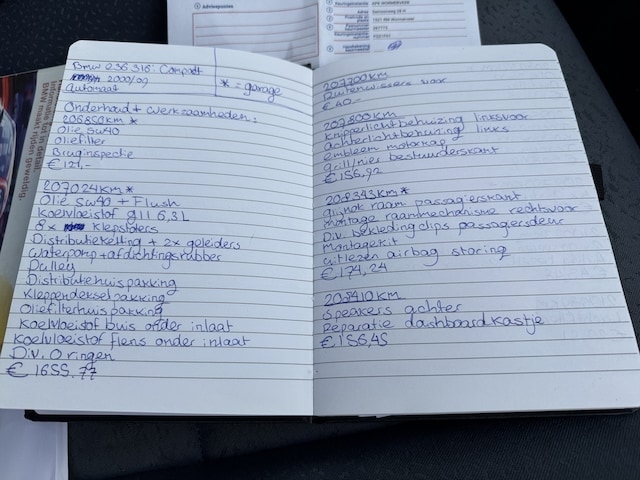 Adviespunten
Informatie tot in detail.
BMW maakt rijden geweldig.
Bmw E36 316i Compact
2000/09
Automaat
* = garage
Onderhoud + werkzaamheden:
206850km *
Olie 5w40
Oliefilter
Bruginspectie
€121,-
207024km *
Olie 5w40 + Flush
Koelvloeistof g11 6,3L
8x klepstoters
Distributieketting + 2x geleiders
Waterpomp + afdichtingsrubber
Pulley
Distributiehuispakking
Kleppendekselpakking
Oliefilterhuispakking
Koelvloeistof buis onder inlaat
Koelvloeistof flens onder inlaat
Div. O ringen
€1655,77
207700km
Ruitenwissers voor
€40,-
207800km
Knipperlichtbehuizing linksvoor
achterlichtbehuizing links
embleem motorkap
grill/nier bestuurderskant
€156,92
208343km *
raam passagierskant
montage raammechanisme rechtsvoor
Div. bekledingclips passagiersdeur
montagekit
uitlezen airbag storing
€174,24
208410km
Speakers achter
Reparatie dashboardkastje
€156,45